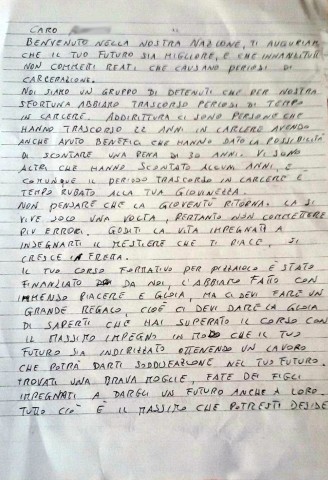 CARO
BENVENUTO NELLA NOSTRA NAZIONE, TI AUGURIAM
CHE IL TUO FUTURO SIA MIGLIORE, E CHE INNANZITUTT
NON COMMETTI REATI CHE CAUSANO PERIODI DI
CARCERAZIONE.
NOI SIAMO UN GRUPPO DI DETENUTI CHE PER NOSTRA
SFORTUNA ABBIAMO TRASCORSO PERIODI DI TEMPO
IN CARCERE. ADDIRITTURA CI SONO PERSONE CHE
HANNO TRASCORSO 22 ANNI IN CARCERE AVENDO
ANCHE AVUTO BENEFICI CHE HANNO DATO LA POSSIBILITÀ
DI SCONTARE UNA PENA DI 30 ANNI. VI SONO
ALTRI CHE HANNO SCONTATO ALCUNI ANNI, E
COMUNQUE IL PERIODO TRASCORSO IN CARCERE È
TEMPO RUBATO ALLA TUA GIOVINEZZA.
NON PENSARE CHE LA GIOVENTÙ RITORNA. LA SI
VIVE SOLO UNA VOLTA, PERTANTO NON COMMETTERE
PIÙ ERRORI. GODITI LA VITA IMPEGNATI A
INSEGNARTI IL MESTIERE CHE TI PIACE, SI
CRESCE IN FRETTA.
IL TUO CORSO FORMATIVO PER PIZZAIOLO È STATO
FINANZIATO DA NOI, L'ABBIAMO FATTO CON
IMMENSO PIACERE E GIOIA, MA CI DEVI FARE UN
GRANDE REGALO, CIOÈ CI DEVI DARE LA GIOIA
DI SAPERTI CHE HAI SUPERATO IL CORSO CON
IL MASSIMO IMPEGNO IN MODO CHE IL TUO
FUTURO SIA INDIRIZZATO OTTENENDO UN LAVORO
CHE POTRÀ DARTI SODDISFAZIONE NEL TUO FUTURO.
TROVATI UNA BRAVA MOGLIE, FATE DEI FIGLI
IMPEGNATI A DARGLI UN FUTURO ANCHE A LORO.
TUTTO CIÒ È IL MASSIMO CHE POTRESTI DESIDE